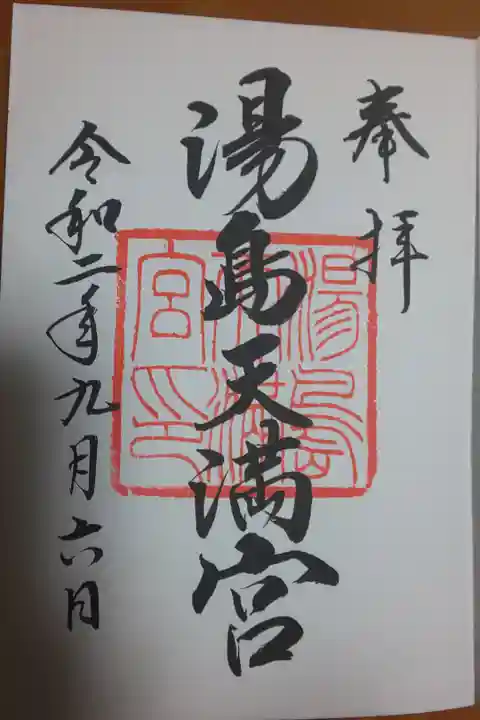 奉拝
湯島天満宮
令和二年九月六日
湯島
天満
宮印